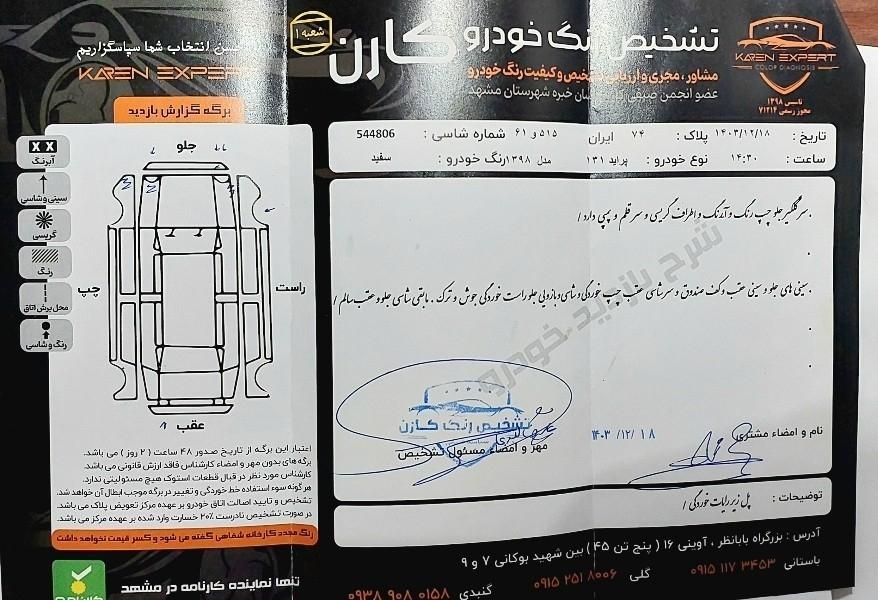 تشخیص رنگ خودرو کارن
شعبه ۱
مشاور، مجری و ارزیابی تشخیص و کیفیت رنگ خودرو
خبره شهرستان مشهد
انتخاب شما سپاسگزاریم
KAREN EXPERT
KAREN EXPERT
COLOR DIAGNOSIS
تاسیس ۱۳۹۸
مجوز رسمی ۷۱۲۱۴
برگه گزارش بازدید
تاریخ : ۱۴۰۳/۱۲/۱۸ پلاک : ۷۴ ایران ۵۱۵ و ۶۱ شماره شاسی : 544806
ساعت : ۱۴:۳۰ نوع خودرو : پراید ۱۳۱ مدل ۱۳۹۸ رنگ خودرو : سفید
. سر گلگیر جلو چپ رنگ و آبرنگ و اطراف گریسی و سر قلم و پیچی دارد /
. سینی های جلو و سینی عقب و کف صندوق و سرشاسی عقب چپ خوردگی و شاسی و بازوئی جلو راست خوردگی جوش و ترک . مابقی شاسی جلو و عقب سالم /
شرح بازدید خودرو
جلو
عقب
چپ
راست
X X
آبرنگ
سینی و شاسی
گریسی
رنگ
محل برش اتاق
رنگ و شاسی
تشخیص رنگ کارن
مهر و امضاء مسئول تشخیص
نام و امضاء مشتری
۱۴۰۳ / ۱۲ / ۱۸
توضیحات : پل زیر رادیات خوردگی /
اعتبار این برگه از تاریخ صدور ۴۸ ساعت ( ۲ روز ) می باشد.
برگه های بدون مهر و امضاء کارشناس فاقد ارزش قانونی می باشد.
کارشناس مورد نظر در قبال قطعات استوک هیچ مسئولیتی ندارد.
هرگونه سوء استفاده خط خوردگی و تغییر در برگه موجب ابطال آن خواهد شد.
تشخیص و تایید اصالت اتاق خودرو بر عهده مرکز تعویض پلاک می باشد.
در صورت تشخیص نادرست ۲۰% خسارت وارد شده بر عهده مرکز می باشد.
رنگ مجدد کارخانه شفاهی گفته می شود و کسر قیمت نخواهد داشت
آدرس : بزرگراه بابانظر ، آوینی ۱۶ ( پنج تن ۴۵ ) بین شهید بوکانی ۷ و ۹
باستانی ۰۹۱۵ ۱۱۷ ۳۴۵۳ گلی ۰۹۱۵ ۲۵۱ ۸۰۰۶ گنبدی ۰۹۳۸ ۹۰۸ ۰۱۵۸
تنها نماینده کارنامه در مشهد